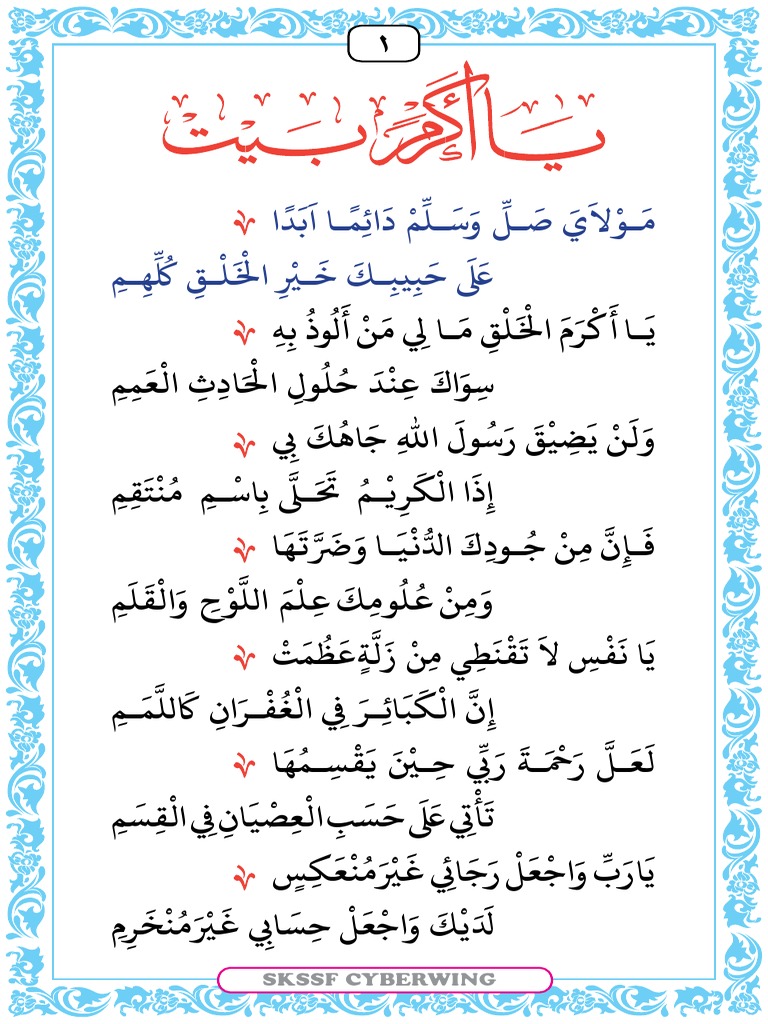 ١
يَا أَكْرَمَ بَيْت
مَوْلاَيَ صَلِّ وَسَلِّمْ دَائِمًا اَبَدًا
عَلَى حَبِيبِكَ خَيْرِ الْخَلْقِ كُلِّهِمِ
يَا أَكْرَمَ الْخَلْقِ مَا لِي مَنْ أَلُوذُ بِهِ
سِوَاكَ عِنْدَ حُلُولِ الْحَادِثِ الْعَمِمِ
وَلَنْ يَضِيْقَ رَسُولَ اللهِ جَاهُكَ بِي
إِذَا الْكَرِيْمُ تَحَلَّى بِاسْمِ مُنْتَقِمِ
فَإِنَّ مِنْ جُودِكَ الدُّنْيَا وَضَرَّتَهَا
وَمِنْ عُلُومِكَ عِلْمَ اللَّوْحِ وَالْقَلَمِ
يَا نَفْسِ لاَ تَقْنَطِي مِنْ زَلَّةٍ عَظُمَتْ
إِنَّ الْكَبَائِرَ فِي الْغُفْرَانِ كَاللَّمَمِ
لَعَلَّ رَحْمَةَ رَبِّي حِيْنَ يَقْسِمُهَا
تَأْتِي عَلَى حَسَبِ الْعِصْيَانِ فِي الْقِسَمِ
يَارَبِّ وَاجْعَلْ رَجَائِي غَيْرَ مُنْعَكِسٍ
لَدَيْكَ وَاجْعَلْ حِسَابِي غَيْرَ مُنْخَرِمِ
SKSSF CYBERWING